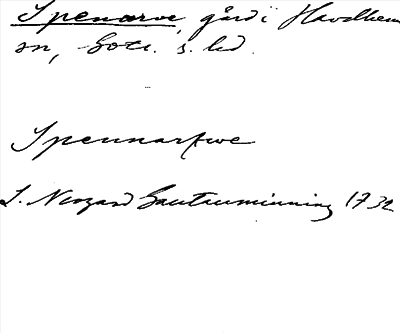 Spenarve, gård i Havdhem
sn, Gotl. s. hd.
Spennarfwe
L. Neogard Gautauminning 1732